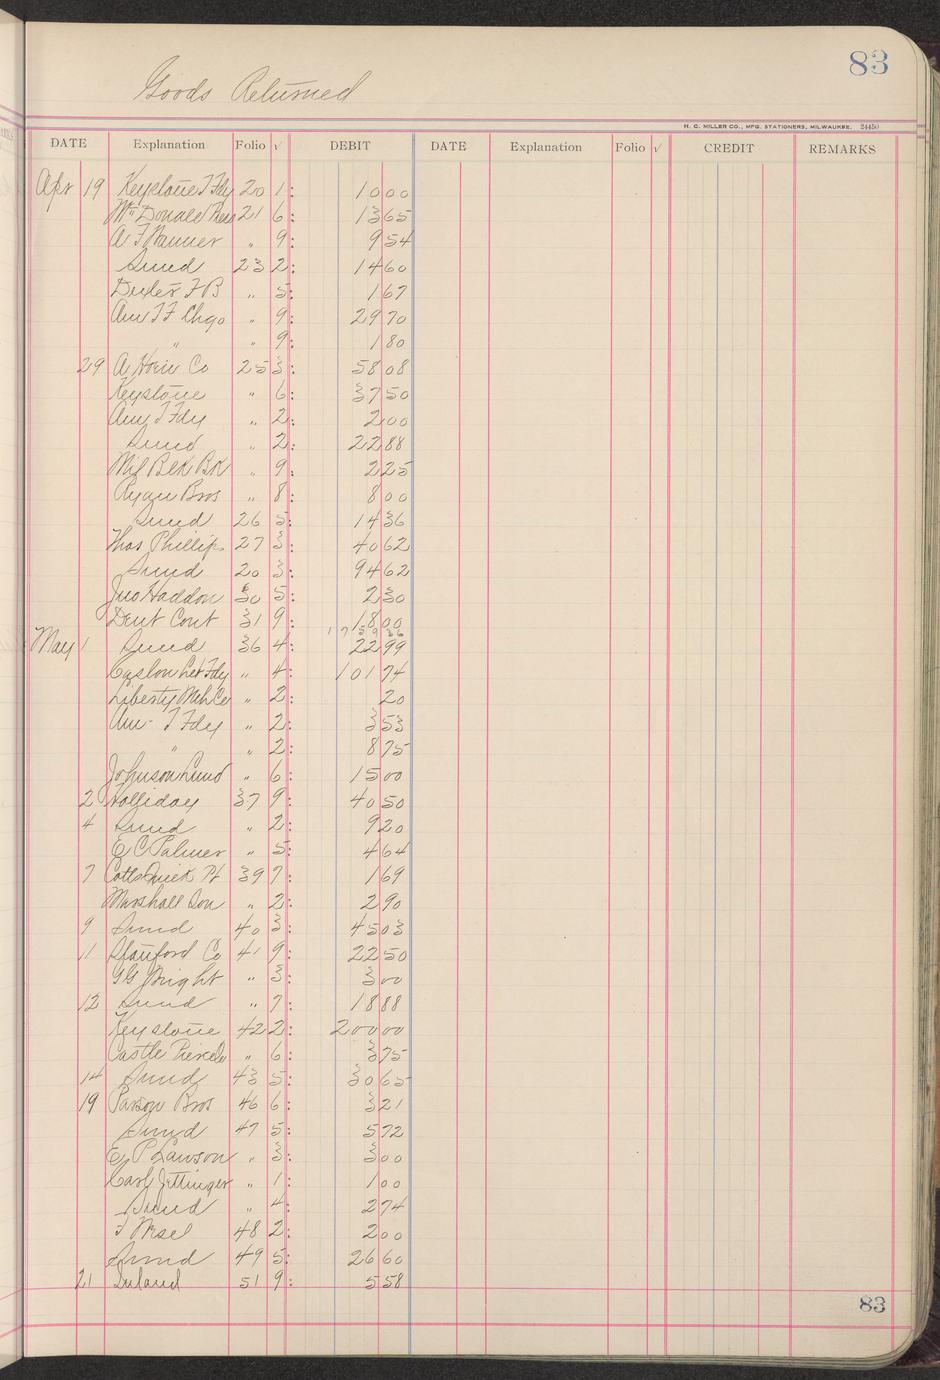 83
Goods Returned
H. C. MILLER CO., MFG. STATIONERS, MILWAUKEE. 24450
DATE Explanation Folio √ DEBIT DATE Explanation Folio √ CREDIT REMARKS
Apr 19 Keystone T Fdy 20 1: 10 00
McDonald 21 6: 13 65
A F Wanner " 9: 9 54
Sund 23 2: 14 60
Dexter F B " 5: 1 67
Am T F Chgo " 9: 29 70
" " 9: 1 80
29 A Hoen Co 25 3: 58 08
Keystone " 6: 37 50
Am T Fdy " 2: 2 00
Sund " 2: 22 88
Mil Blk Bk " 9: 2 25
Ryan Bros " 8: 8 00
Sund 26 5: 14 36
Thos Phillips 27 3: 40 62
Sund 20 3: 94 62
Jno Haddon 30 5: 2 30
Dent Cont 31 9: 18 00
May 1 Sund 36 4: 22 99
Caslon Let Fdy " 4: 101 74
Liberty Mch Co " 2: 20
Am T Fdy " 2: 3 53
" " 2: 8 75
Johnson " 6: 15 00
2 Holliday 37 9: 40 50
4 Sund " 2: 9 20
E C Palmer " 5: 4 64
7 39 7: 1 69
Marshall Son " 2: 2 90
9 Sund 40 3: 45 03
11 Stanford Co 41 9: 22 50
Bright " 3: 3 00
12 Sund " 7: 18 88
Keystone 42 2: 200 00
Castle " 6: 3 75
14 Sund 43 5: 30 65
19 Paxson Bros 46 6: 3 21
Sund 47 5: 5 72
E P Lawson " 3: 3 00
Carl Jettinger " 1: 1 00
Sund " 4: 2 74
F Wesel 48 2: 2 00
Sund 49 5: 26 60
21 Inland 51 9: 5 58
83